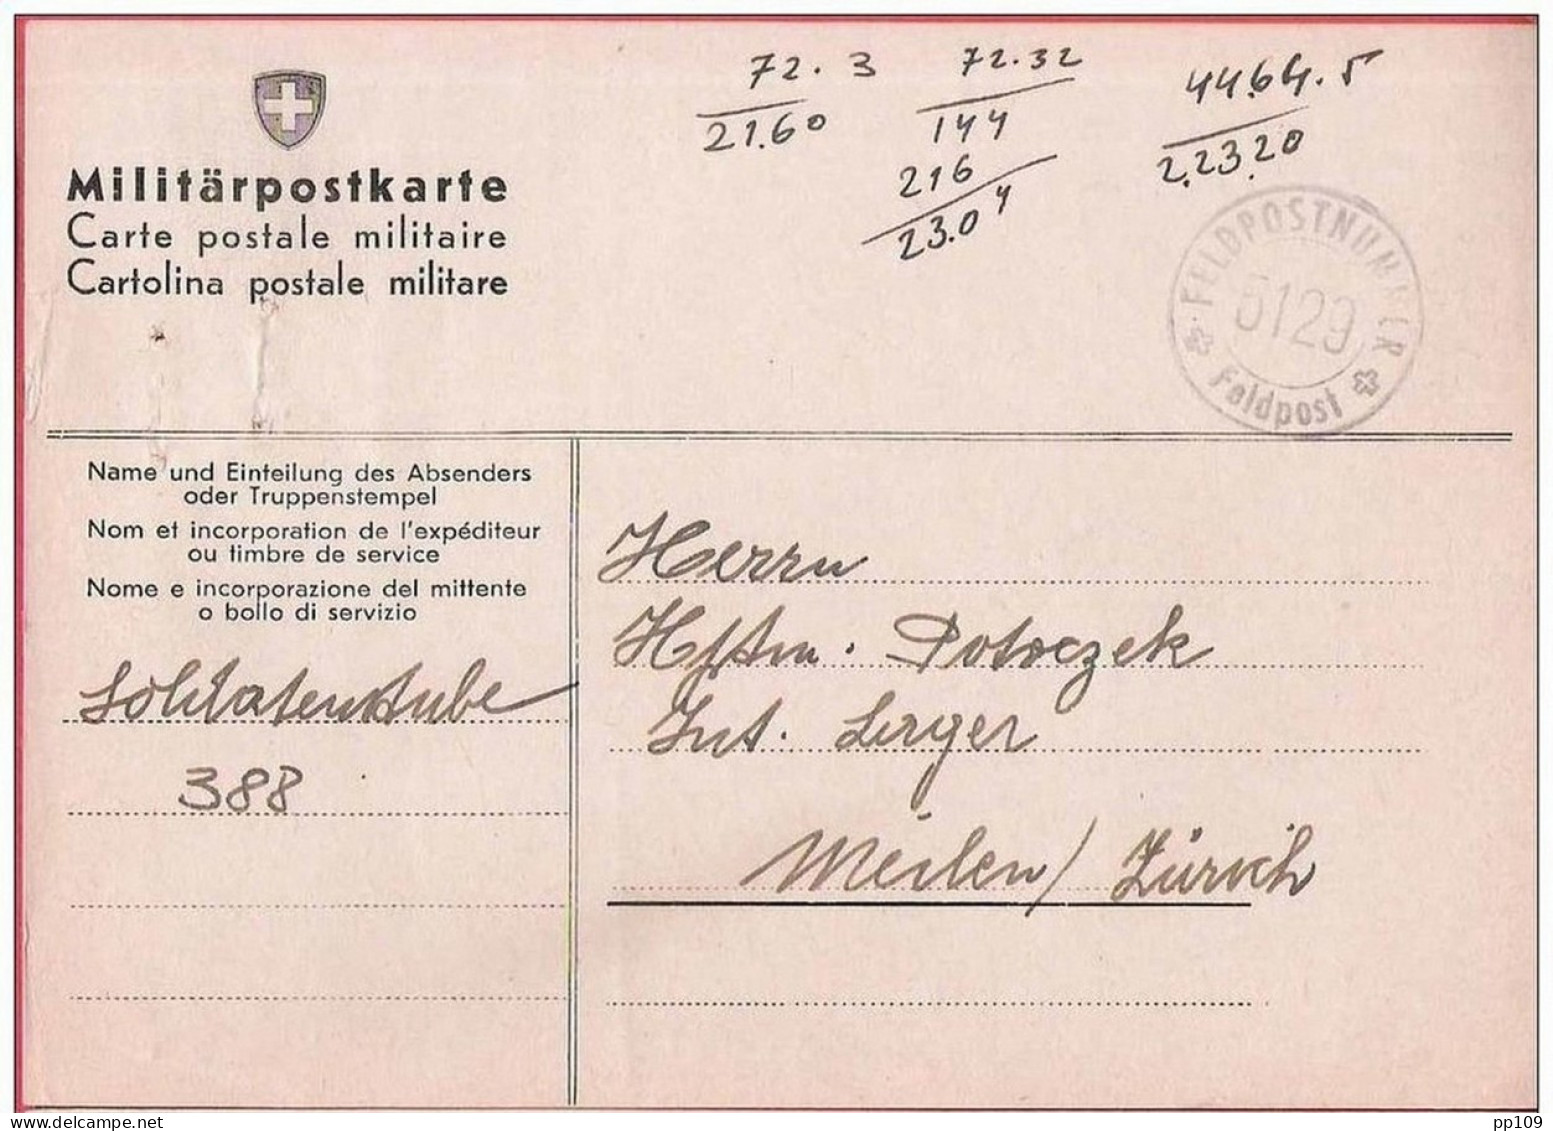 72.3
21.60
72.32
144
216
23.04
4464.5
2.2320
Militärpostkarte
Carte postale militaire
Cartolina postale militare
FELDPOSTNUMMER
5129
Feldpost
Name und Einteilung des Absenders
oder Truppenstempel
Nom et incorporation de l'expéditeur
ou timbre de service
Nome e incorporazione del mittente
o bollo di servizio
Soldatenstube
388
Herrn
Hptm. Potoczek
Int. Lager
Meilen / Zürich
delcampe.net
pp109